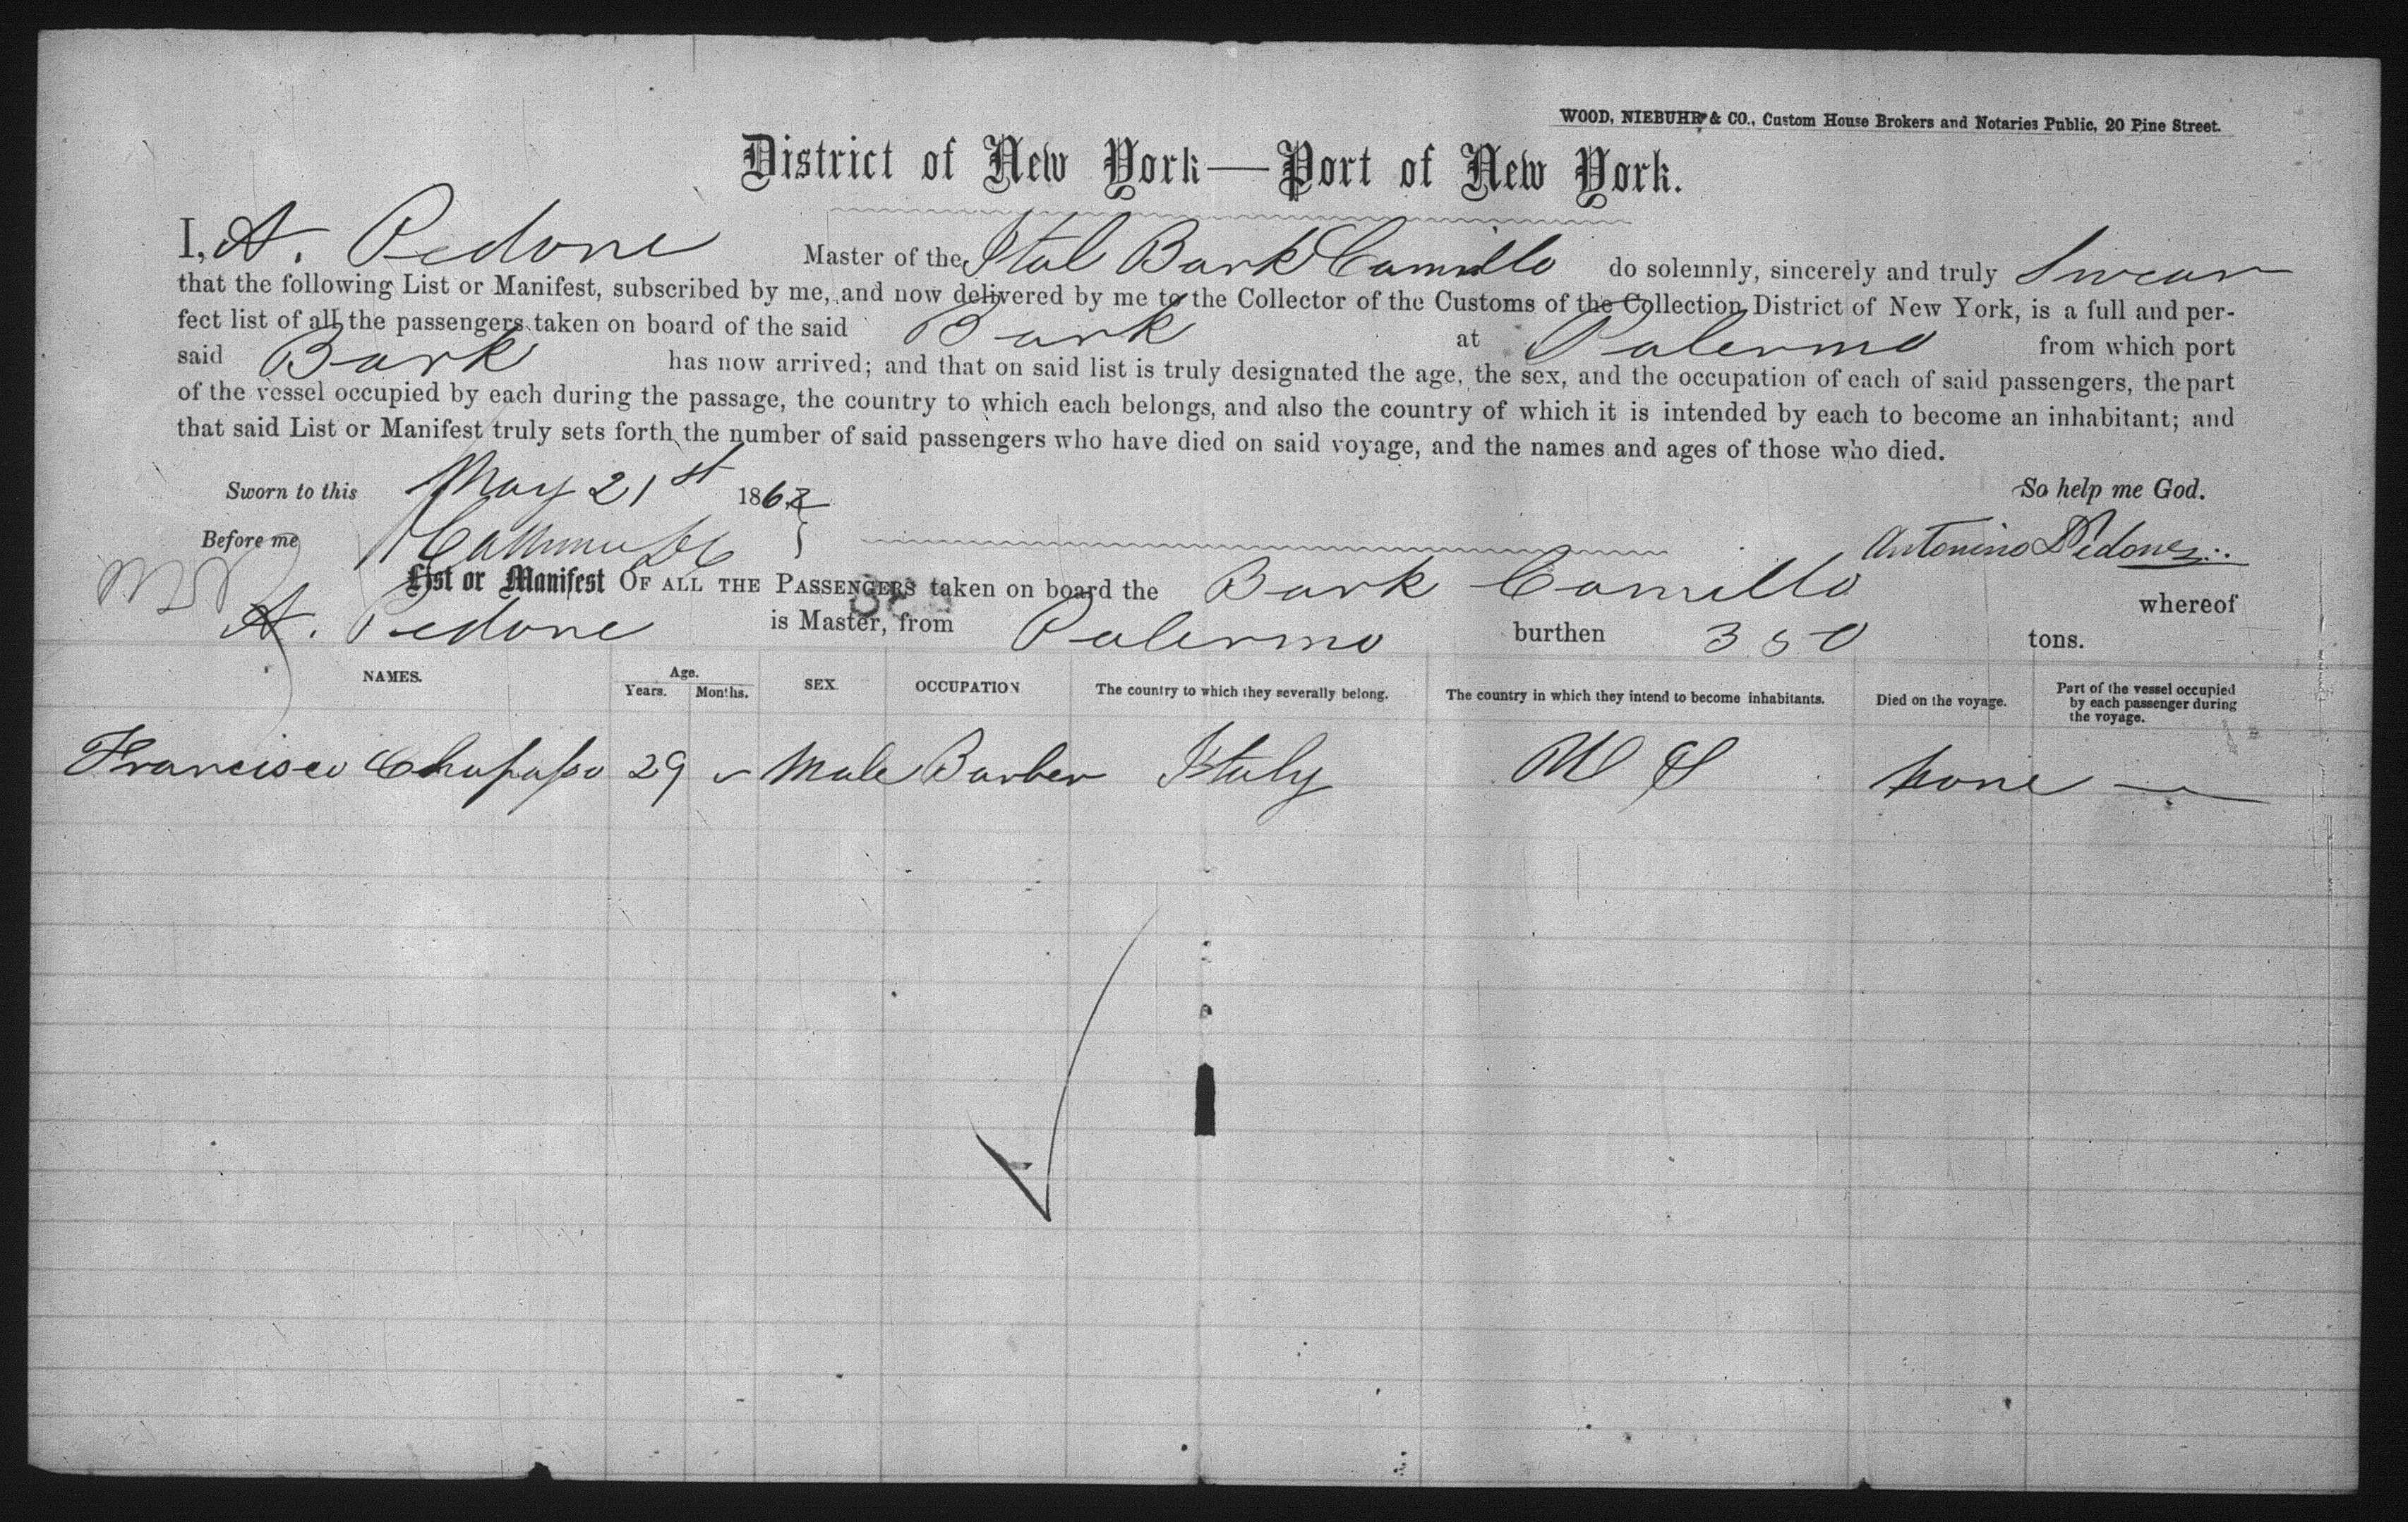 WOOD, NIEBUHR & CO., Custom House Brokers and Notaries Public, 20 Pine Street.
District of New York—Port of New York.
I, A. Pedone Master of the Ital Bark Camillo do solemnly, sincerely and truly Swear
that the following List or Manifest, subscribed by me, and now delivered by me to the Collector of the Customs of the Collection District of New York, is a full and per-
fect list of all the passengers taken on board of the said Bark at Palermo from which port
said Bark has now arrived; and that on said list is truly designated the age, the sex, and the occupation of each of said passengers, the part
of the vessel occupied by each during the passage, the country to which each belongs, and also the country of which it is intended by each to become an inhabitant; and
that said List or Manifest truly sets forth the number of said passengers who have died on said voyage, and the names and ages of those who died.
Sworn to this May 21st 186 So help me God.
Before me Antonino Pedone
List or Manifest OF ALL THE PASSENGERS taken on board the Bark Camillo whereof
A. Pedone is Master, from Palermo burthen 350 tons.
NAMES. Age. Years. Months. SEX. OCCUPATION The country to which they severally belong. The country in which they intend to become inhabitants. Died on the voyage. Part of the vessel occupied by each passenger during the voyage.
Francisco 29 Male Barber Italy U S None